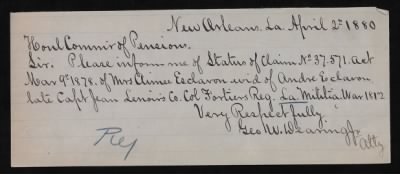 New Orleans, La April 2d 1880
Honl Commr of Pensions.
Sir. Please inform me of Status of Claim No 37.571. act
Mar 9th 1878. of Mrs Aimee Esclavon wid of Andre Esclavon
late Capt Jean Lenoirs Co. Col Fortiers Reg. La Militia War 1812
Very Respectfully.
Geo W. Dearing Jr
Atty